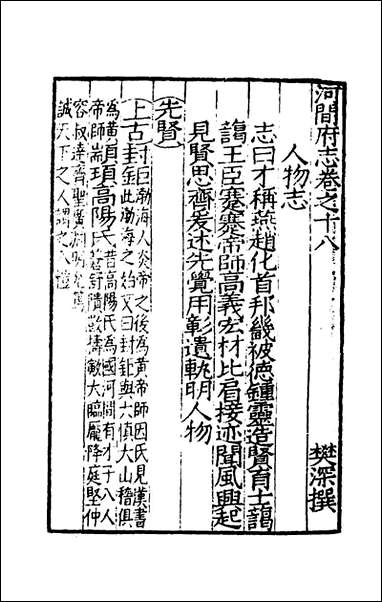 河間府志卷之十八 樊深撰
人物志
志曰才稱燕趙化首邦畿被德鍾靈造賢育士藹
藹王臣蹇蹇帝師高義宏材比肩接迹聞風興起
見賢思齊爰述先覺用彰遺軌明人物
先賢
上古封鉅 封巨渤海人炎帝之後為黃帝師因氏見漢書
此渤海之始又曰封鉅與六慎大山稽俱
為黃
帝師 顓頊高陽氏 昔高陽氏為國河間有才子八人
蒼舒隤敳擣戭大臨龐降庭堅仲
容叔達齊聖廣淵明允篤
誠天下之人謂之八愷